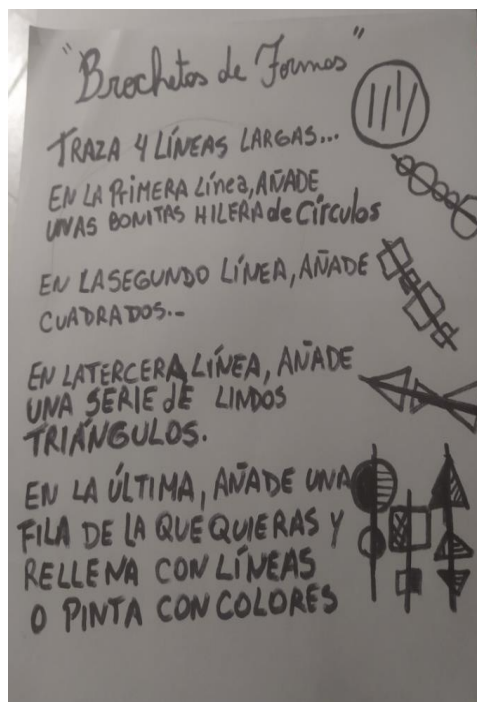 "Brochetas de Formas"
TRAZA 4 LÍNEAS LARGAS...
EN LA PRIMERA Línea, AÑADE
UNAS BONITAS HILERA de Círculos
EN LA SEGUNDO LÍNEA, AÑADE
CUADRADOS...
EN LA TERCERA LÍNEA, AÑADE
UNA SERIE dE LINDOS
TRIÁNGULOS.
EN LA ÚLTIMA, AÑADE UNA
FILA DE LA QUE QUIERAS Y
RELLENA CON LÍNEAS
O PINTA CON COLORES